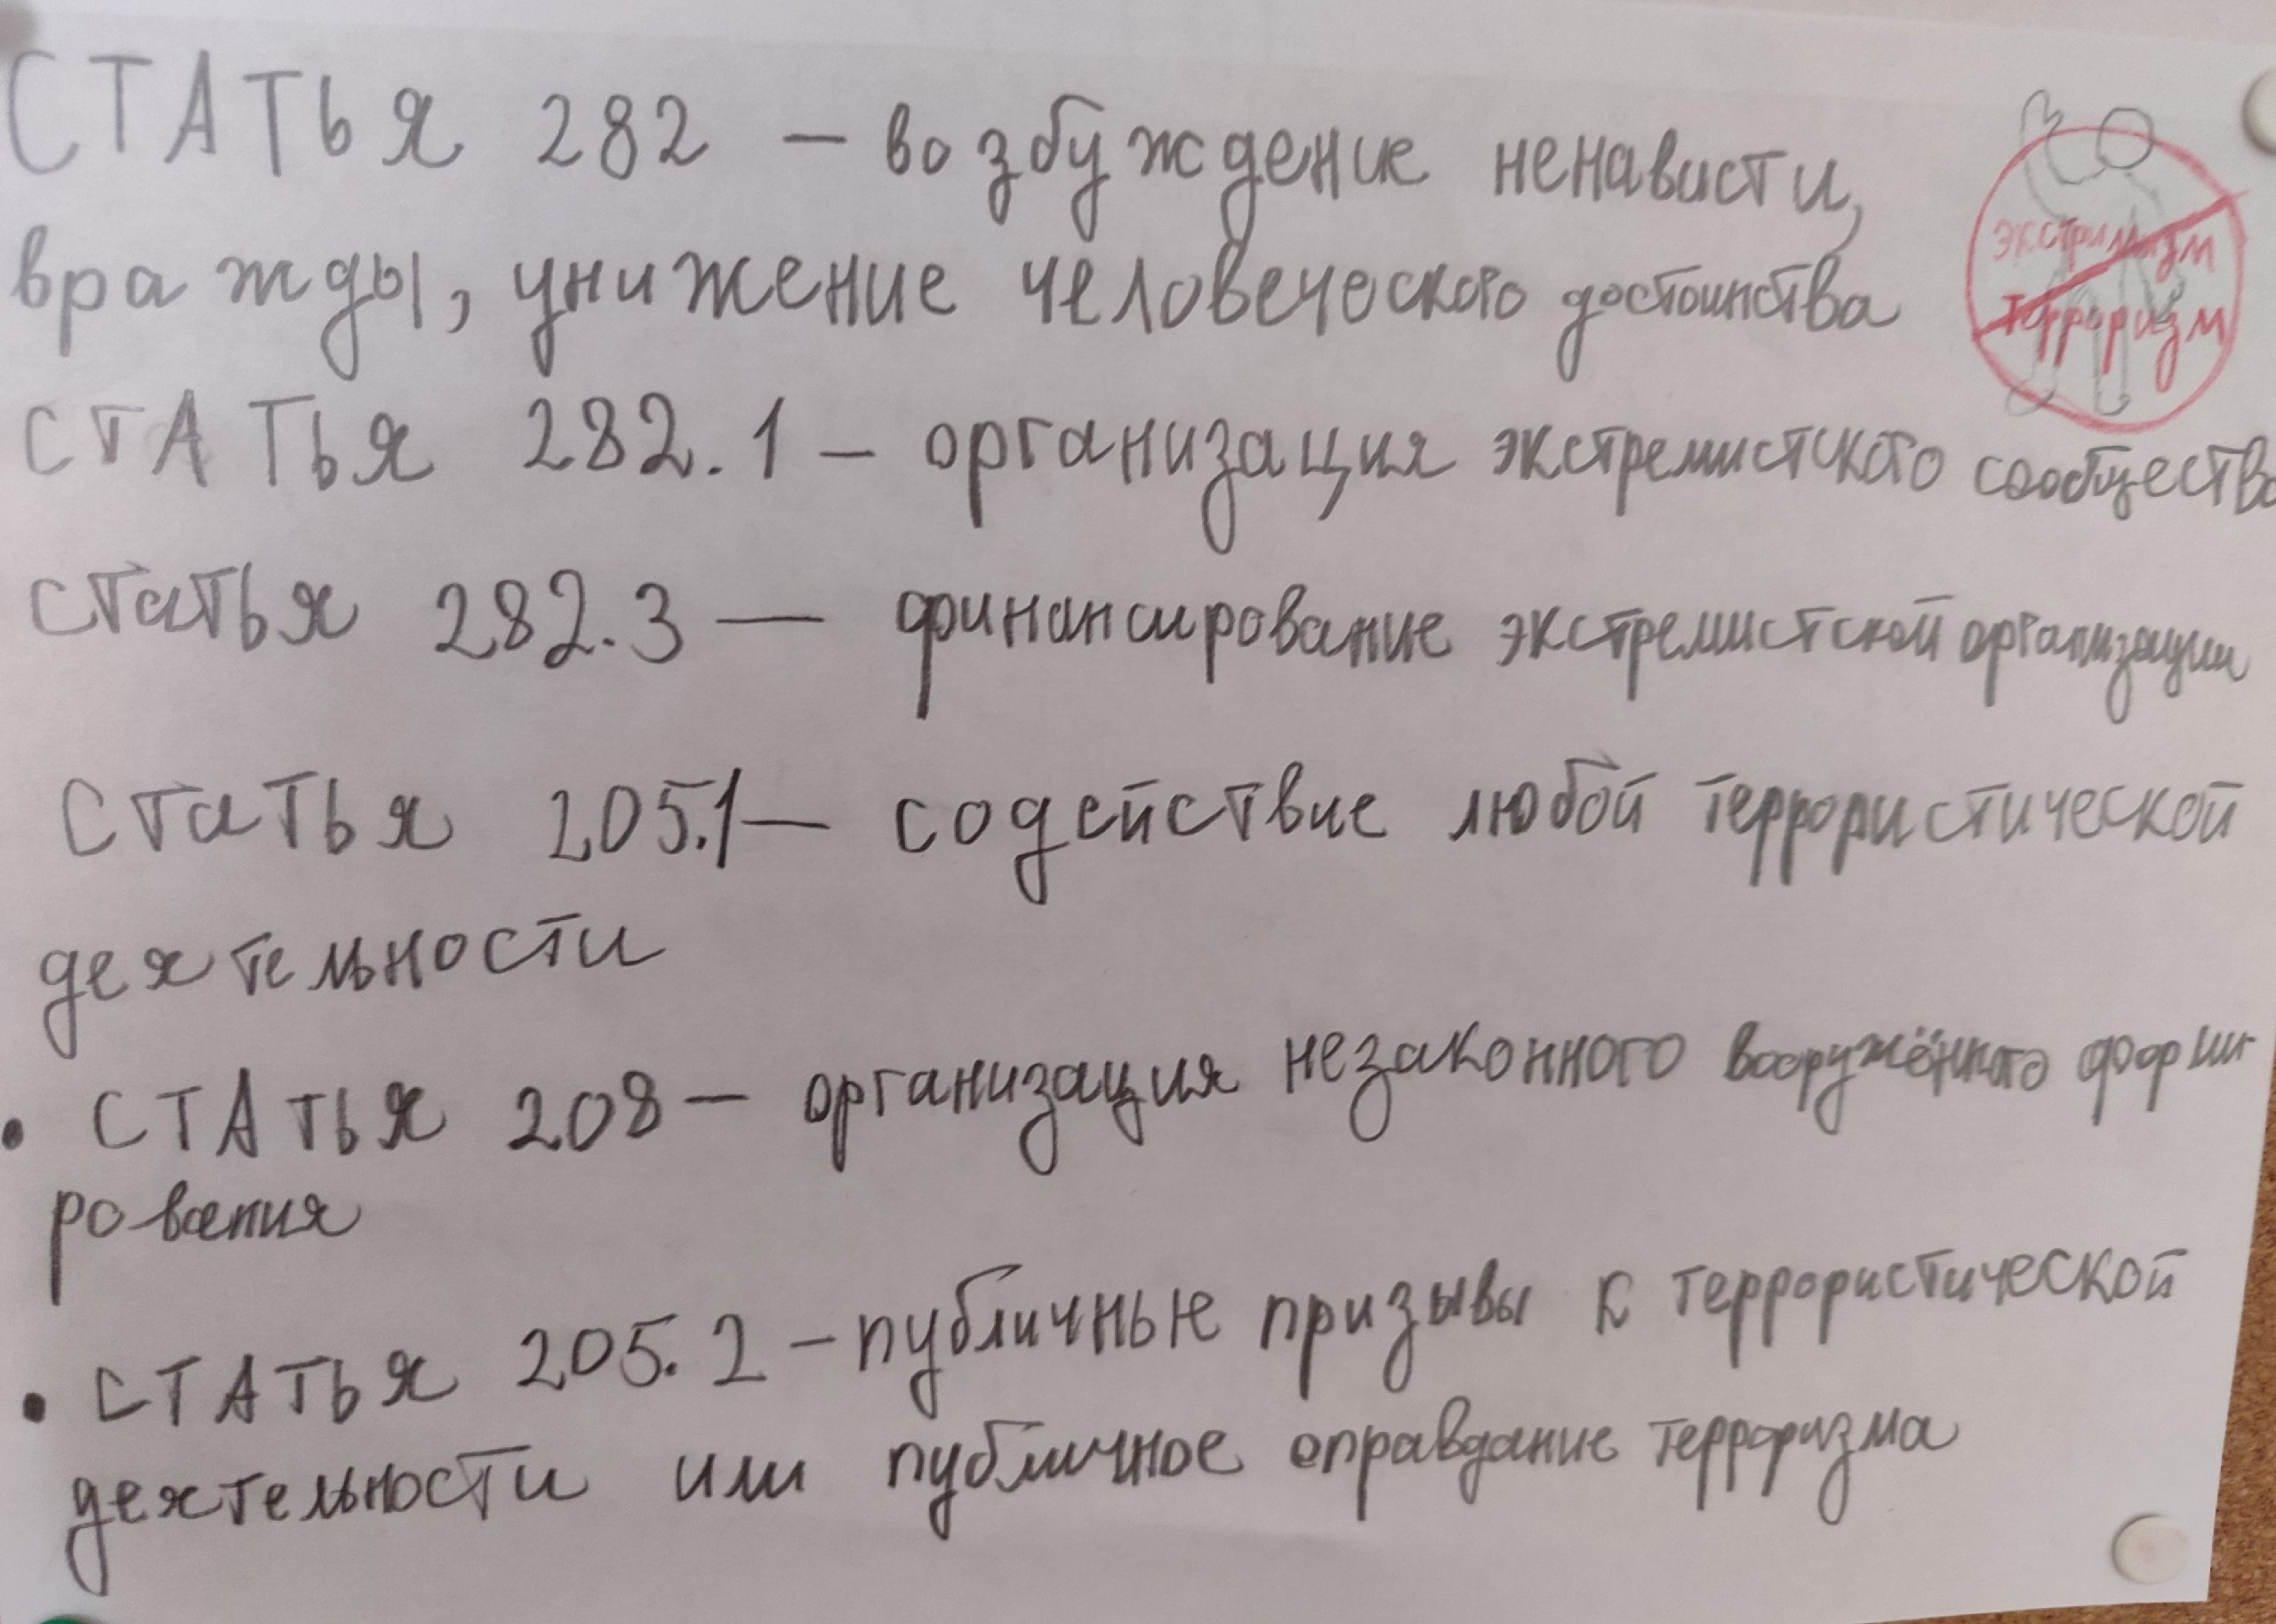 СТАТЬЯ 282 – возбуждение ненависти,
вражды, унижение человеческого достоинства
экстримизм
терроризм
СТАТЬЯ 282.1 – организация экстремистского сообщества
статья 282.3 — финансирование экстремистской организации
Статья 205.1 — содействие любой террористической
деятельности
• СТАТЬЯ 208 – организация незаконного вооружённого форми
рования
• СТАТЬЯ 205.2 – публичные призывы к террористической
деятельности или публичное оправдание терроризма